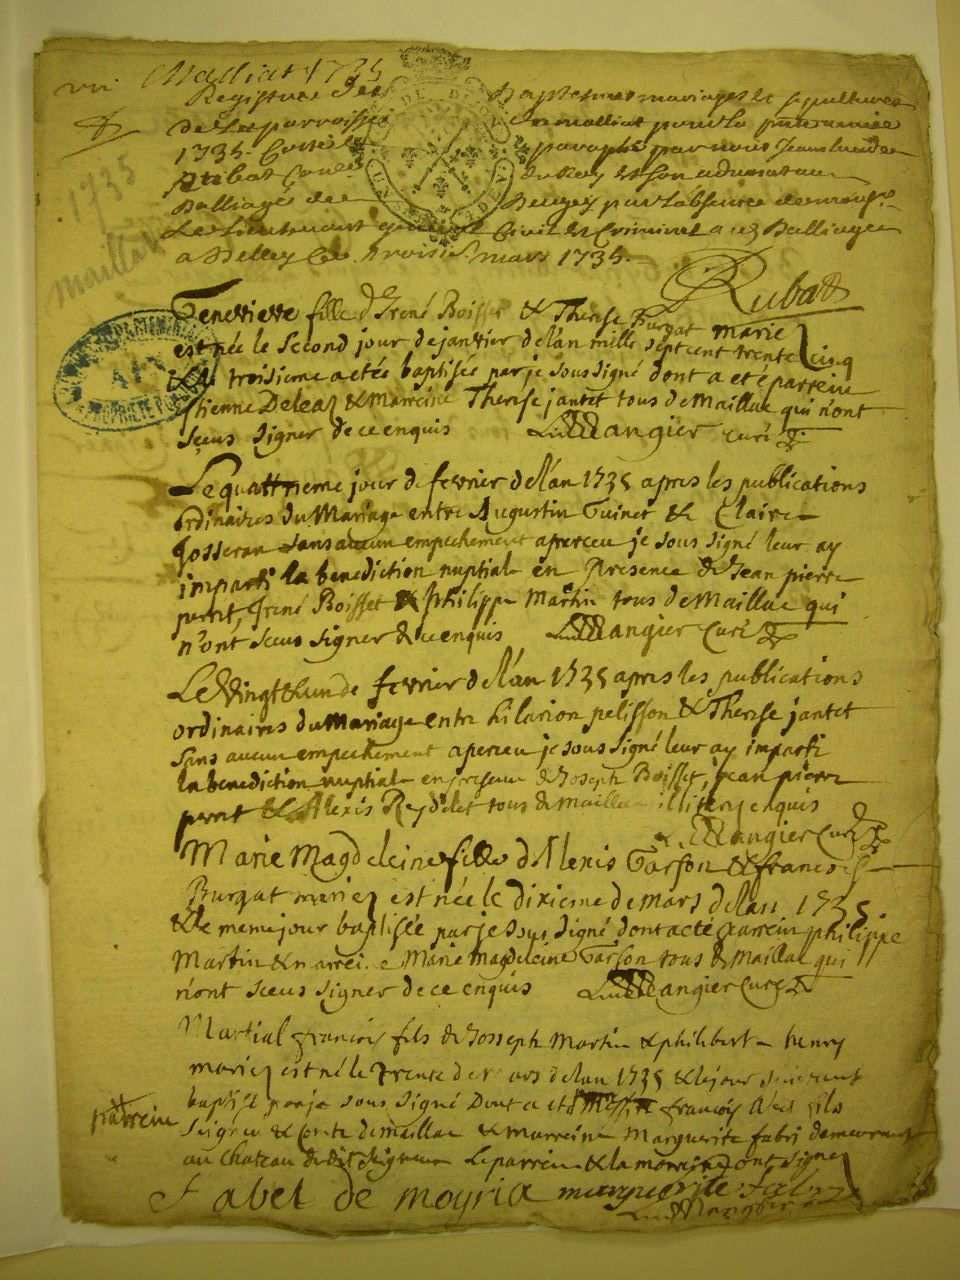 Malliat 1735
Registre des Baptesmes mariages et sepultures
de la parroisse de malliat pour la pnte année
1735. Cotté et paraphé par nous Jean
Rubat Conser du Roy et son advocat au
Balliage de Beugey pour l'absence de monsr.
Le Lieutenant general Civil et Criminel a ce Balliage
a Belley Ce troisie mars 1735.
Rubat
1735
maillat
Genevieve fille d'Irené Boisset & Therese Burgat mariez
est née le second jour de janvier de l'an mille sept cent trente cinq
& le troisieme a etée baptisée par je sous signé dont a eté parrein
Etienne Deleaz & marreine Therese jantet tous de Maillac qui n'ont
sceus signer de ce enquis Mangier curé
Le quattrieme jour de fevrier de l'an 1735 apres les publications
ordinaires du Mariage entre Augustin Guinet & Claire
Josseran sans aucun empechement aperceu je sous signé leur ay
imparti la benediction nuptiale en presence de Jean pierre
perrit, Irené Boisset & philippe Martin tous de Maillac qui
n'ont sceus signer de ce enquis Mangier Curé
Le Vingt & un de fevrier de l'an 1735 apres les publications
ordinaires du Mariage entre hilarion pelisson & Therese jantet
sans aucun empechement aperceu je sous signé leur ay imparti
la benediction nuptiale en presence de Joseph Boisset, jean pierre
perrit & Alexis Reydelet tous de maillac illiterez enquis
Mangier Curé
Marie Magdeleine fille d'Alexis Garson & francoise
Burgat mariez est née le dixieme de mars de l'an 1735
& le meme jour baptisée par je sous signé dont a eté parrein philippe
Martin & marreine Marie Magdeleine Garson tous de Maillac qui
n'ont sceus signer de ce enquis Mangier Curé
Martial francois fils de Josseph Martin & philiberte henry
mariez est né le trente de mars de l'an 1735 & le jour suivant
baptisé par je sous signé Dont a eté Messire francois Abel fils
parrein
Seigneur & Comte de maillac & marreine Marguerite fabri demeurante
au Chateau dudit Seigneur Le parrein & la marreine ont signez
f abel de moyria marguerite fabry
Mangier